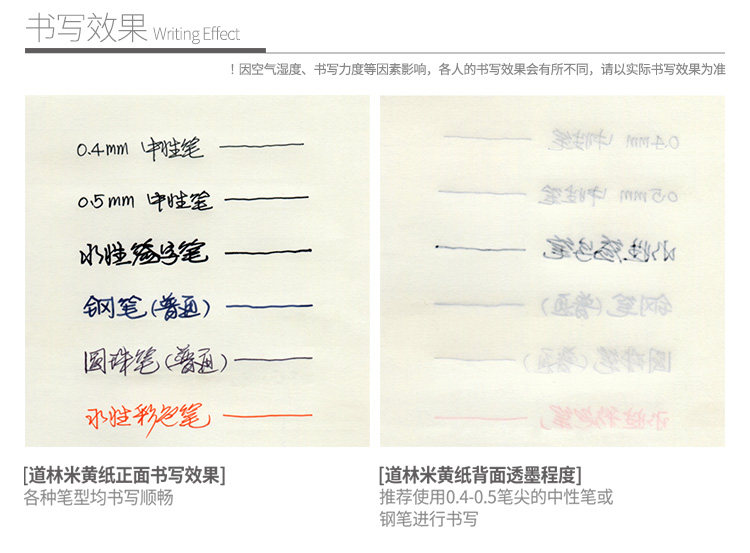 书写效果 Writing Effect
！因空气湿度、书写力度等因素影响，各人的书写效果会有所不同，请以实际书写效果为准
0.4mm 中性笔
0.5mm 中性笔
水性签字笔
钢笔(普通)
圆珠笔(普通)
水性彩色笔
0.4mm 中性笔
0.5mm 中性笔
水性签字笔
钢笔(普通)
圆珠笔(普通)
水性彩色笔
[道林米黄纸正面书写效果]
各种笔型均书写顺畅
[道林米黄纸背面透墨程度]
推荐使用0.4-0.5笔尖的中性笔或
钢笔进行书写